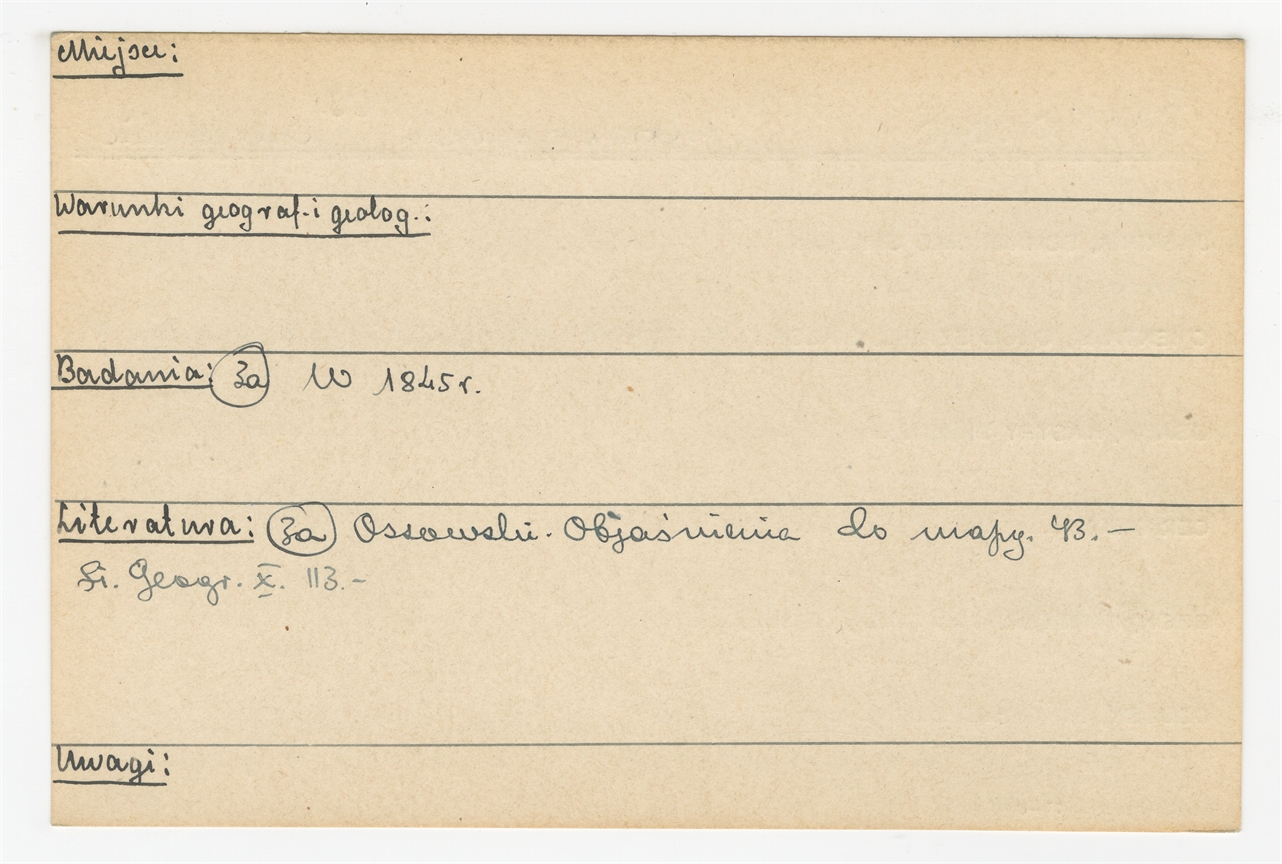 Miejsce:
Warunki geograf. i geolog.:
Badania: 3a W 1845 r.
Literatura: 3a Ossowski. Objaśnienia do mapy. 43. –
Sł. Geogr. X. 113. –
Uwagi: